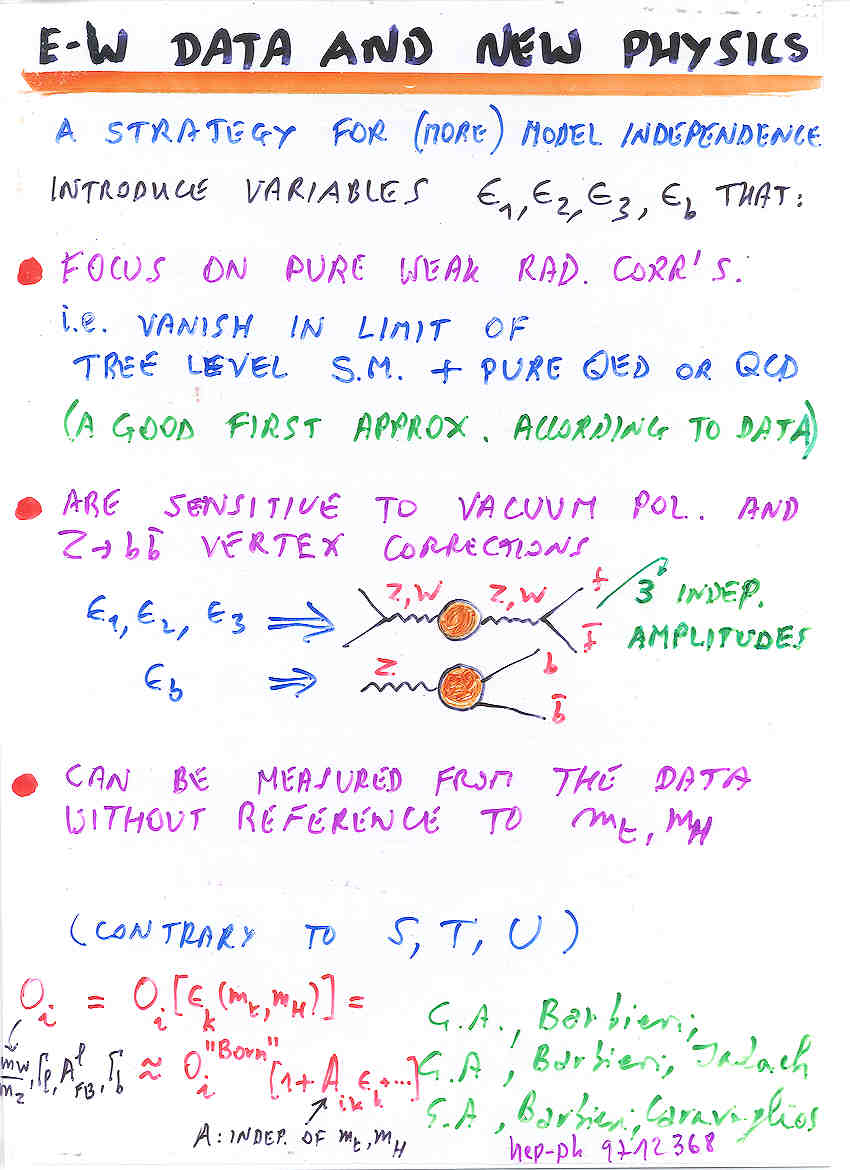 E-W DATA AND NEW PHYSICS
A STRATEGY FOR (MORE) MODEL INDEPENDENCE
INTRODUCE VARIABLES ϵ₁, ϵ₂, ϵ₃, ϵ_b THAT:
FOCUS ON PURE WEAK RAD. CORR'S.
i.e. VANISH IN LIMIT OF
TREE LEVEL S.M. + PURE QED OR QCD
(A GOOD FIRST APPROX. ACCORDING TO DATA)
ARE SENSITIVE TO VACUUM POL. AND
Z→b b̄ VERTEX CORRECTIONS
ϵ₁, ϵ₂, ϵ₃ ⇒ Z,W Z,W f f̄ 3 INDEP.
AMPLITUDES
ϵ_b ⇒ Z b b̄
CAN BE MEASURED FROM THE DATA
WITHOUT REFERENCE TO m_t, m_H
(CONTRARY TO S, T, U)
O_i = O_i[ϵ_k(m_t, m_H)] =
m_W/m_Z, Γ_l, A^l_FB, Γ_b ≈ O_i^"Born" [1+ A_ik ϵ_k+...]
A: INDEP. OF m_t, m_H
G.A., Barbieri;
G.A, Barbieri, Jadach
G.A, Barbieri, Caravaglios
hep-ph 9712368